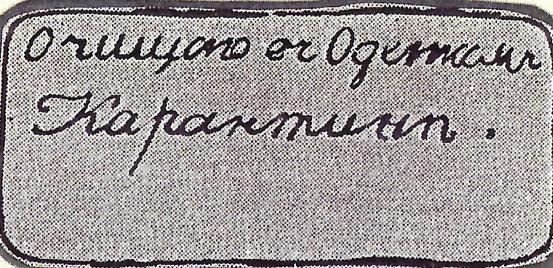 Очищено въ Одесскомъ
Карантинѣ.